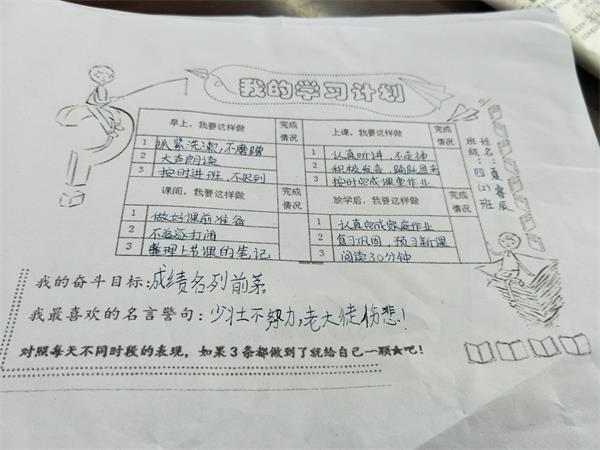 我的学习计划
早上，我要这样做 完成情况
1 抓紧洗漱,不磨蹭
2 大声朗读
3 按时进班,不迟到
上课，我要这样做 完成情况
1 认真听讲,不走神
2 积极发言,踊跃思考
3 按时完成课堂作业
课间，我要这样做 完成情况
1 做好课前准备
2 不追逐打闹
3 整理上节课的笔记
放学后，我要这样做 完成情况
1 认真完成家庭作业
2 复习巩固,预习新课
3 阅读30分钟
姓名:夏睿辰
班级:四(2)班
我的奋斗目标:成绩名列前茅。
我最喜欢的名言警句:少壮不努力,老大徒伤悲!
对照每天不同时段的表现，如果3条都做到了就给自己一颗★吧！